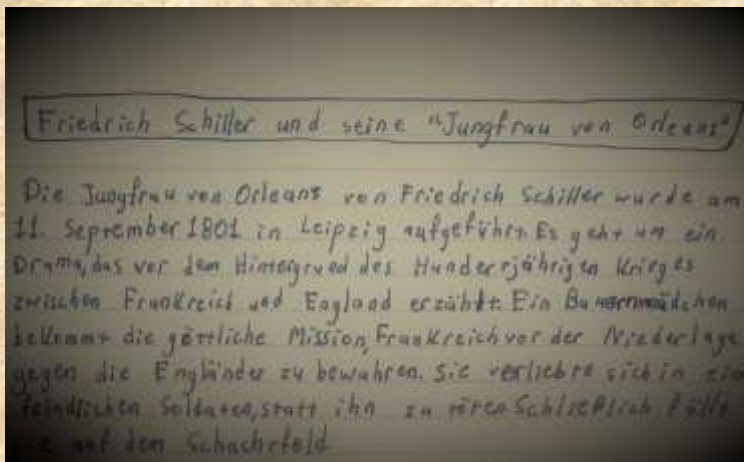 Friedrich Schiller und seine "Jungfrau von Orleans"
Die Jungfrau von Orleans von Friedrich Schiller wurde am
11. September 1801 in Leipzig aufgeführt. Es geht um ein
Drama, das vor dem Hintergrund des Hundertjährigen Krieges
zwischen Frankreich und England erzählt. Ein Bauernmädchen
bekommt die göttliche Mission, Frankreich vor der Niederlage
gegen die Engländer zu bewahren. Sie verliebte sich in ein
feindlichen Soldaten, statt ihn zu töten. Schließlich fällt
sie auf dem Schachtfeld